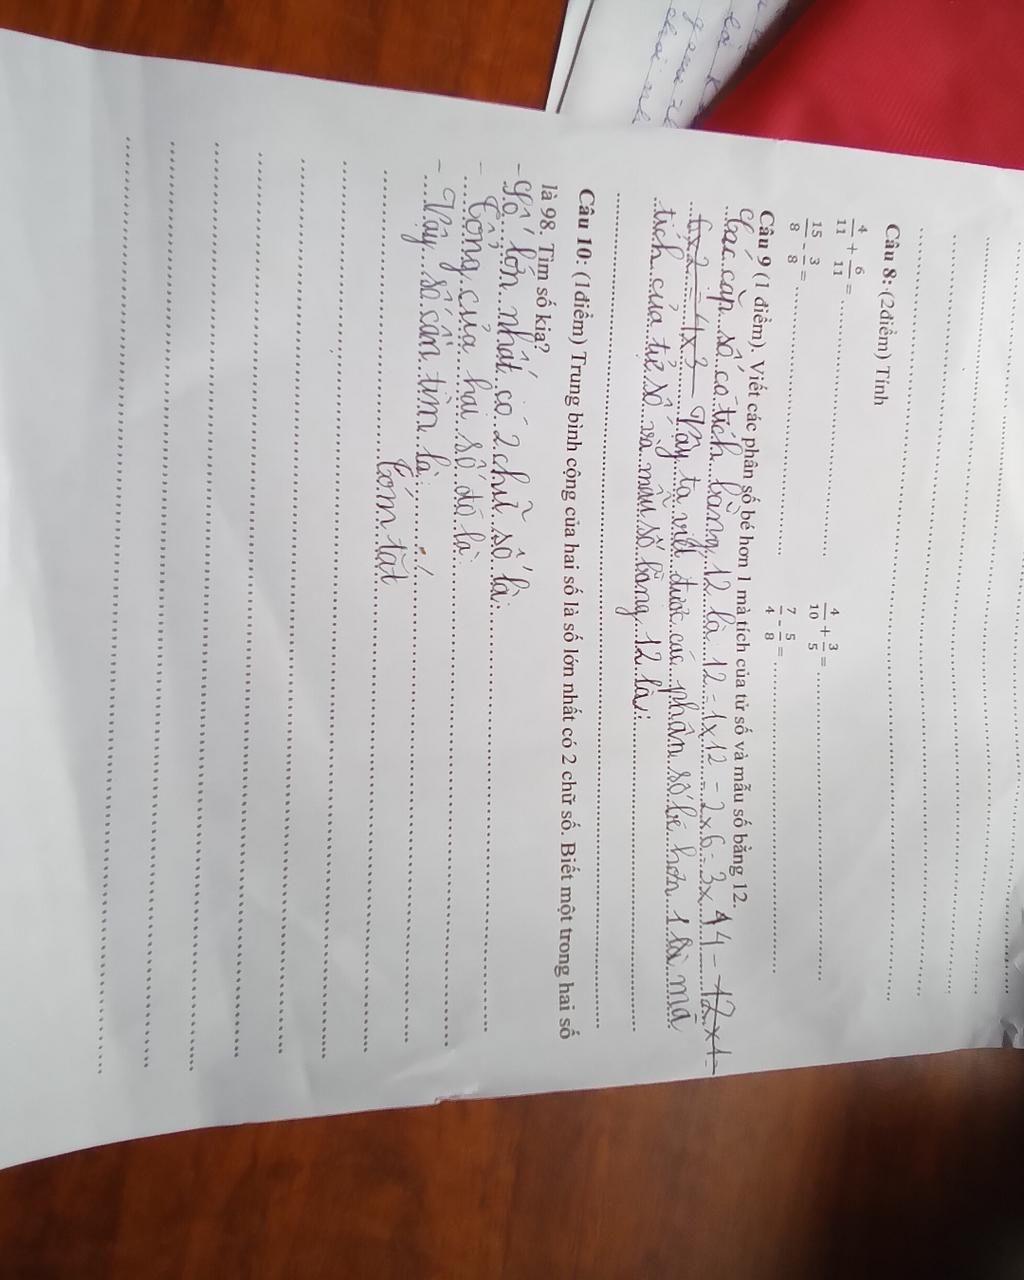 Câu 8: (2điểm) Tính
4/11 + 6/11 = ........ 4/10 + 3/5 = ........
15/8 - 3/8 = ........ 7/4 - 5/8 = ........
Câu 9 (1 điểm). Viết các phân số bé hơn 1 mà tích của tử số và mẫu số bằng 12.
Các cặp số có tích bằng 12 là 12 = 1x12 = 2x6 = 3x4 = 12x1 =
6x2 = 4x3 Vậy ta viết được các phân số bé hơn 1 là mà
tích của tử số và mẫu số bằng 12 là:
Câu 10: (1điểm) Trung bình cộng của hai số là số lớn nhất có 2 chữ số. Biết một trong hai số
là 98. Tìm số kia?
- Số lớn nhất có 2 chữ số là:
- Tổng của hai số đó là:
- Vậy số cần tìm là:
Tóm tắt